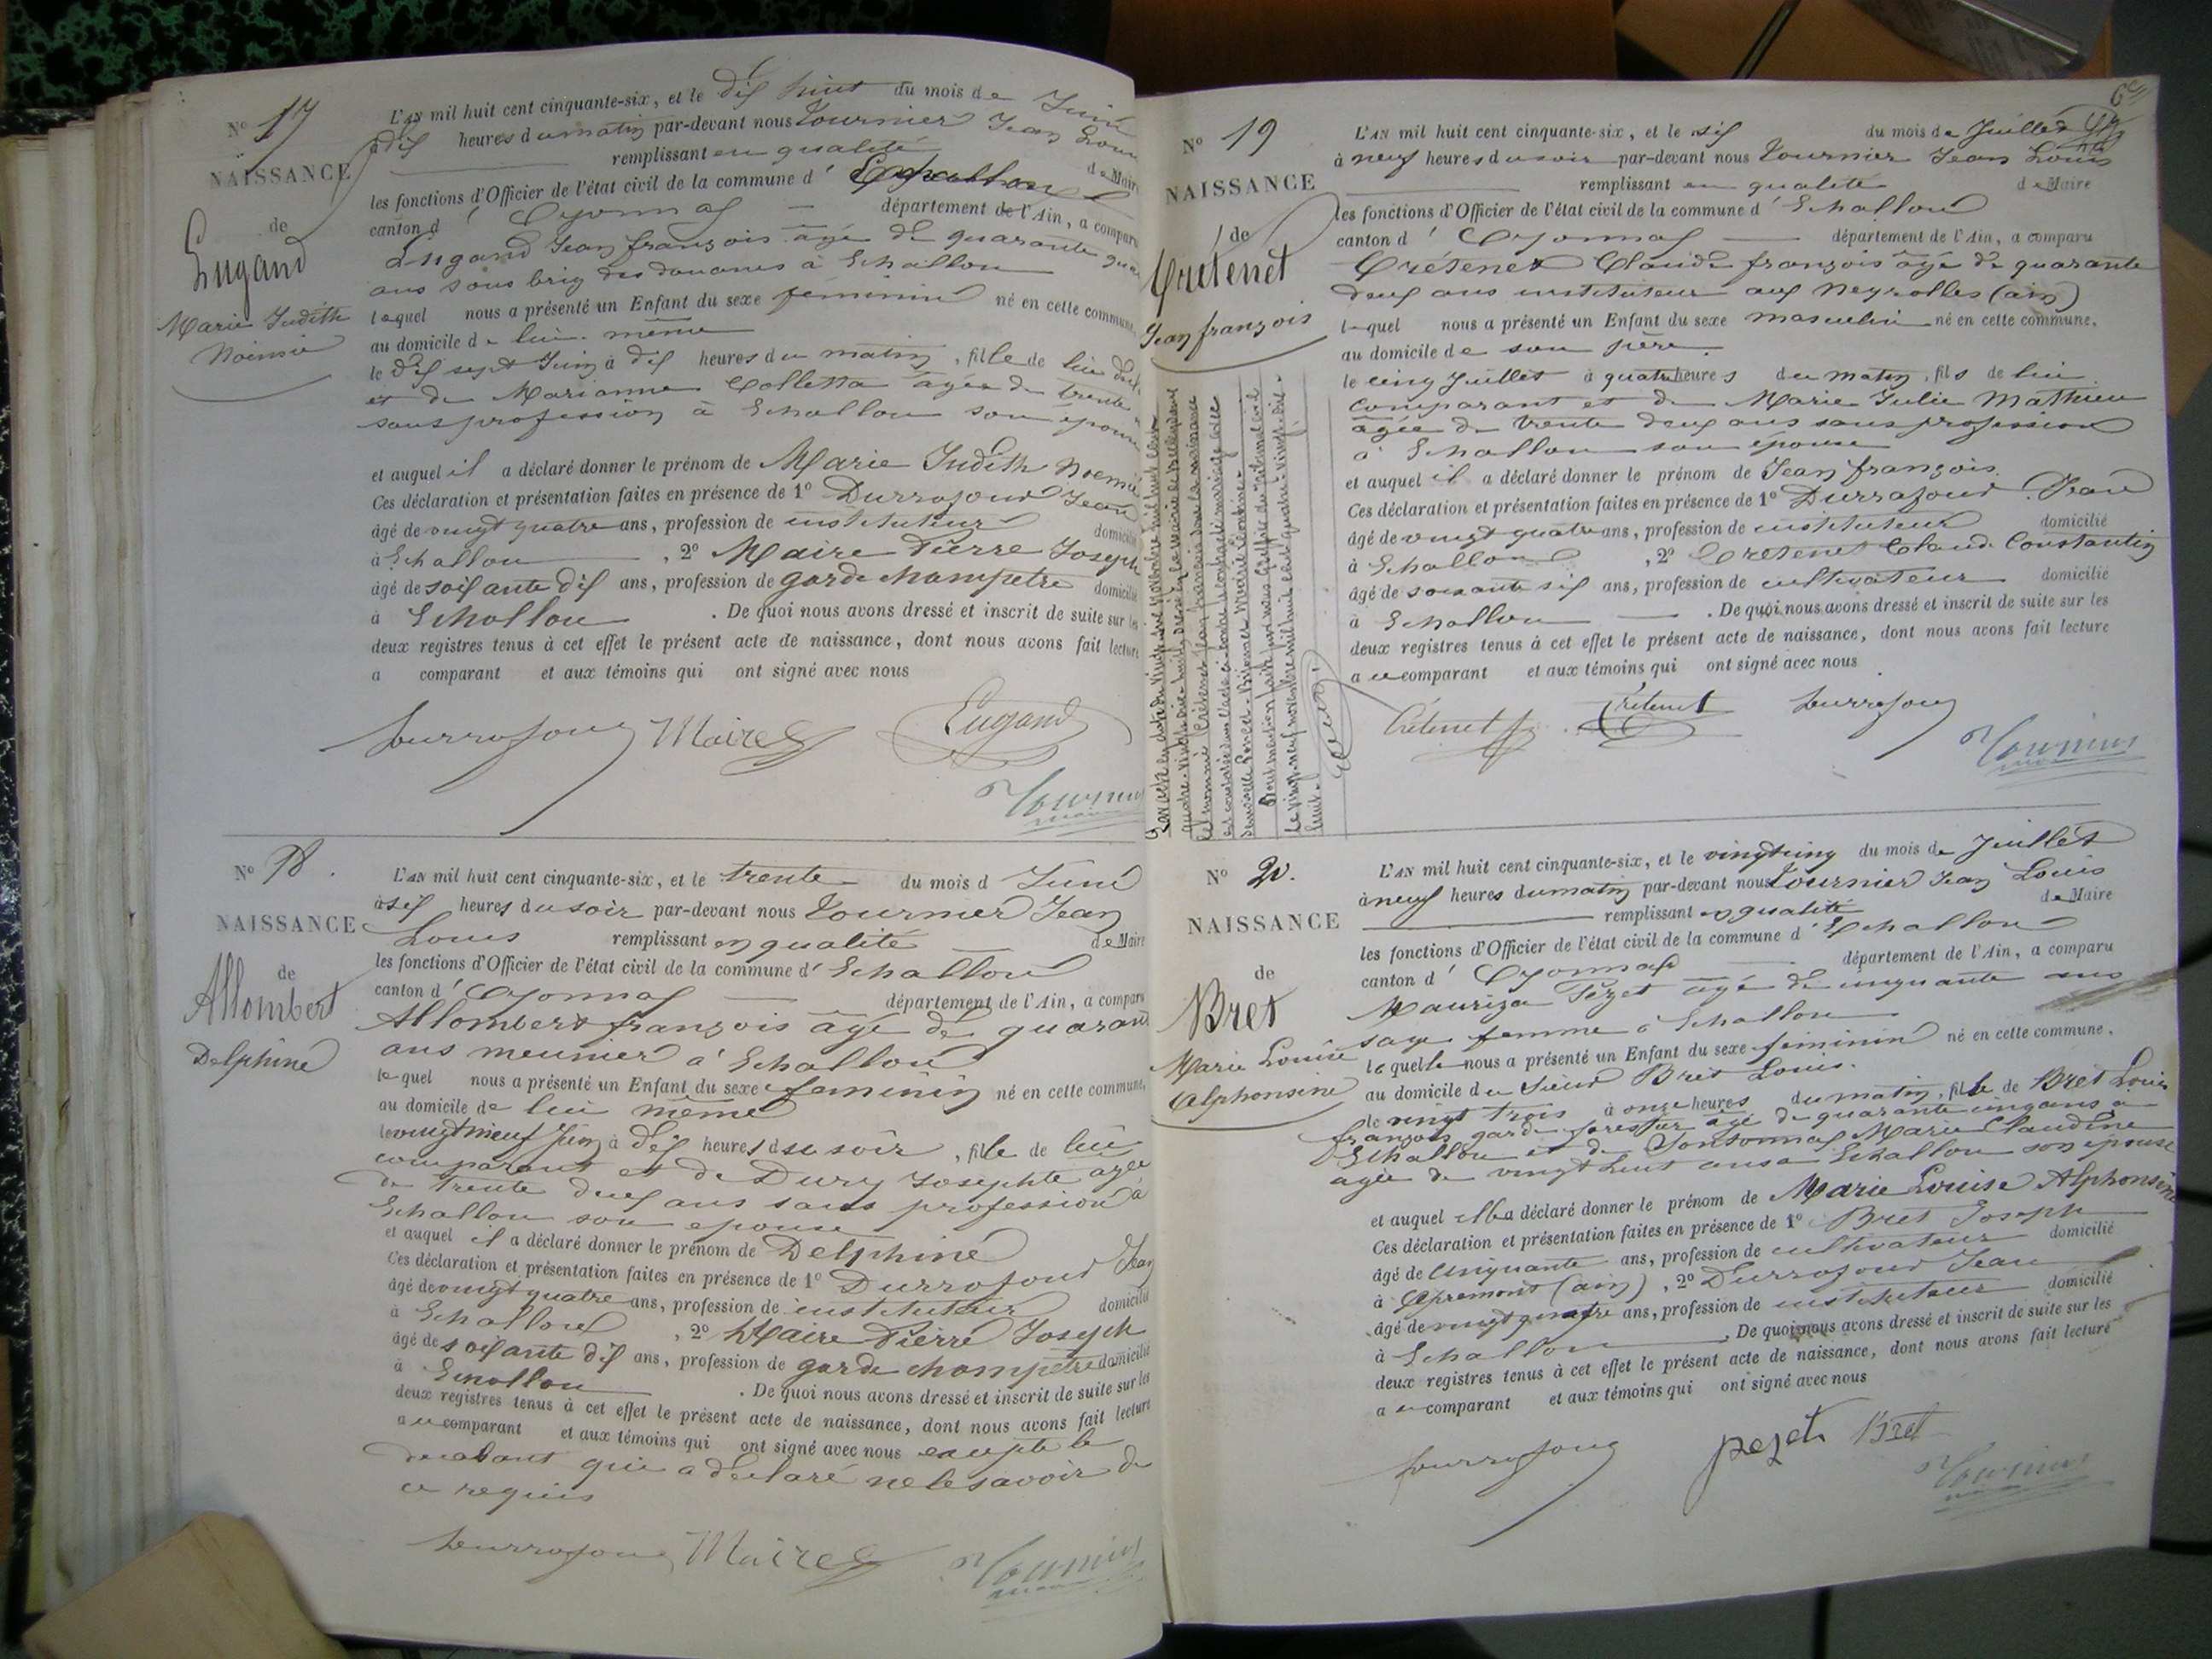 N° 17
NAISSANCE
de
Lugand
Marie Judith
Noémie
L'AN mil huit cent cinquante-six, et le dix huit du mois de Juin
à dix heures du matin par-devant nous Tournier Jean Louis
remplissant en qualité de Maire
les fonctions d'Officier de l'état civil de la commune d' Echallon
canton d' Oyonnax département de l'Ain, a comparu
Lugand Jean françois âgé de quarante
ans sous brig des douanes à Echallon
lequel nous a présenté un Enfant du sexe féminin né en cette commune,
au domicile de lui même
le dix sept Juin à dix heures du matin, fille de lui
et de Marianne Colletta âgée de trente
sans profession à Echallon son épouse
et auquel il a déclaré donner le prénom de Marie Judith Noemie
Ces déclaration et présentation faites en présence de 1° Durrafour Jean
âgé de vingt quatre ans, profession de instituteur domicilié
à Echallon, 2° Maire Pierre Joseph
âgé de soixante dix ans, profession de garde champetre domicilié
à Echallon. De quoi nous avons dressé et inscrit de suite sur les
deux registres tenus à cet effet le présent acte de naissance, dont nous avons fait lecture
a comparant et aux témoins qui ont signé avec nous
Durrafour Maire Lugand
Tournier
N° 18.
NAISSANCE
de
Allombert
Delphine
L'AN mil huit cent cinquante-six, et le trente du mois d Juin
à six heures du soir par-devant nous Tournier Jean
Louis remplissant en qualité de Maire
les fonctions d'Officier de l'état civil de la commune d' Echallon
canton d' Oyonnax département de l'Ain, a comparu
Allombert françois âgé de quarante
ans meunier à Echallon
lequel nous a présenté un Enfant du sexe feminin né en cette commune,
au domicile de lui même
le vingt neuf Juin à dix heures du soir, fille de lui
comparant et de Dury Josephte agée
de trente deux ans sans profession à
Echallon son epouse
et auquel il a déclaré donner le prénom de Delphine
Ces déclaration et présentation faites en présence de 1° Durrafour Jean
âgé de vingt quatre ans, profession de instituteur domicilié
à Echallon, 2° Maire Pierre Joseph
âgé de soixante dix ans, profession de garde champetre domicilié
à Echallon. De quoi nous avons dressé et inscrit de suite sur les
deux registres tenus à cet effet le présent acte de naissance, dont nous avons fait lecture
au comparant et aux témoins qui ont signé avec nous excepté le
declarant qui a déclaré ne le savoir de
ce requis
Durrafour Maire Tournier
N° 19
NAISSANCE
de
Crétenet
Jean françois
L'AN mil huit cent cinquante-six, et le six du mois de Juillet
à neuf heures du soir par-devant nous Tournier Jean Louis
remplissant en qualité de Maire
les fonctions d'Officier de l'état civil de la commune d' Echallon
canton d' Oyonnax département de l'Ain, a comparu
Crétenet Claude françois âgé de quarante
deux ans instituteur aux Neyrolles (ain)
lequel nous a présenté un Enfant du sexe masculin né en cette commune,
au domicile de son père.
le cinq Juillet à quatre heures du matin, fils de lui
comparant et de Marie Julie Mathieu
agée de trente deux ans sans profession
à Echallon son épouse
et auquel il a déclaré donner le prénom de Jean françois.
Ces déclaration et présentation faites en présence de 1° Durrafour Jean
âgé de vingt quatre ans, profession de instituteur domicilié
à Echallon, 2° Cretenet Claude Constantin
âgé de soixante six ans, profession de cultivateur domicilié
à Echallon. De quoi nous avons dressé et inscrit de suite sur les
deux registres tenus à cet effet le présent acte de naissance, dont nous avons fait lecture
au comparant et aux témoins qui ont signé avec nous
Crétenet Crétenet Durrafour
Tournier
N° 20.
NAISSANCE
de
Bret
Marie Louise
Alphonsine
L'AN mil huit cent cinquante-six, et le vingt cinq du mois de Juillet
à neuf heures du matin par-devant nous Tournier Jean Louis
remplissant en qualité de Maire
les fonctions d'Officier de l'état civil de la commune d' Echallon
canton d' Oyonnax département de l'Ain, a comparu
Mauriza Pézet agé de cinquante ans
sage femme à Echallon
laquelle nous a présenté un Enfant du sexe féminin né en cette commune,
au domicile du Sieur Bret Louis.
le vingt trois à onze heures du matin, fille de Bret Louis
françois garde forestier âgé de quarante cinq ans à
Echallon et de Sonthonnax Marie Claudine
agée de vingt huit ans à Echallon son épouse
et auquel elle a déclaré donner le prénom de Marie Louise Alphonsine
Ces déclaration et présentation faites en présence de 1° Bret Joseph
âgé de cinquante ans, profession de cultivateur domicilié
à Apremont (ain), 2° Durrafour Jean
âgé de vingt quatre ans, profession de instituteur domicilié
à Echallon. De quoi nous avons dressé et inscrit de suite sur les
deux registres tenus à cet effet le présent acte de naissance, dont nous avons fait lecture
au comparant et aux témoins qui ont signé avec nous
Durrafour pezet Bret
Tournier